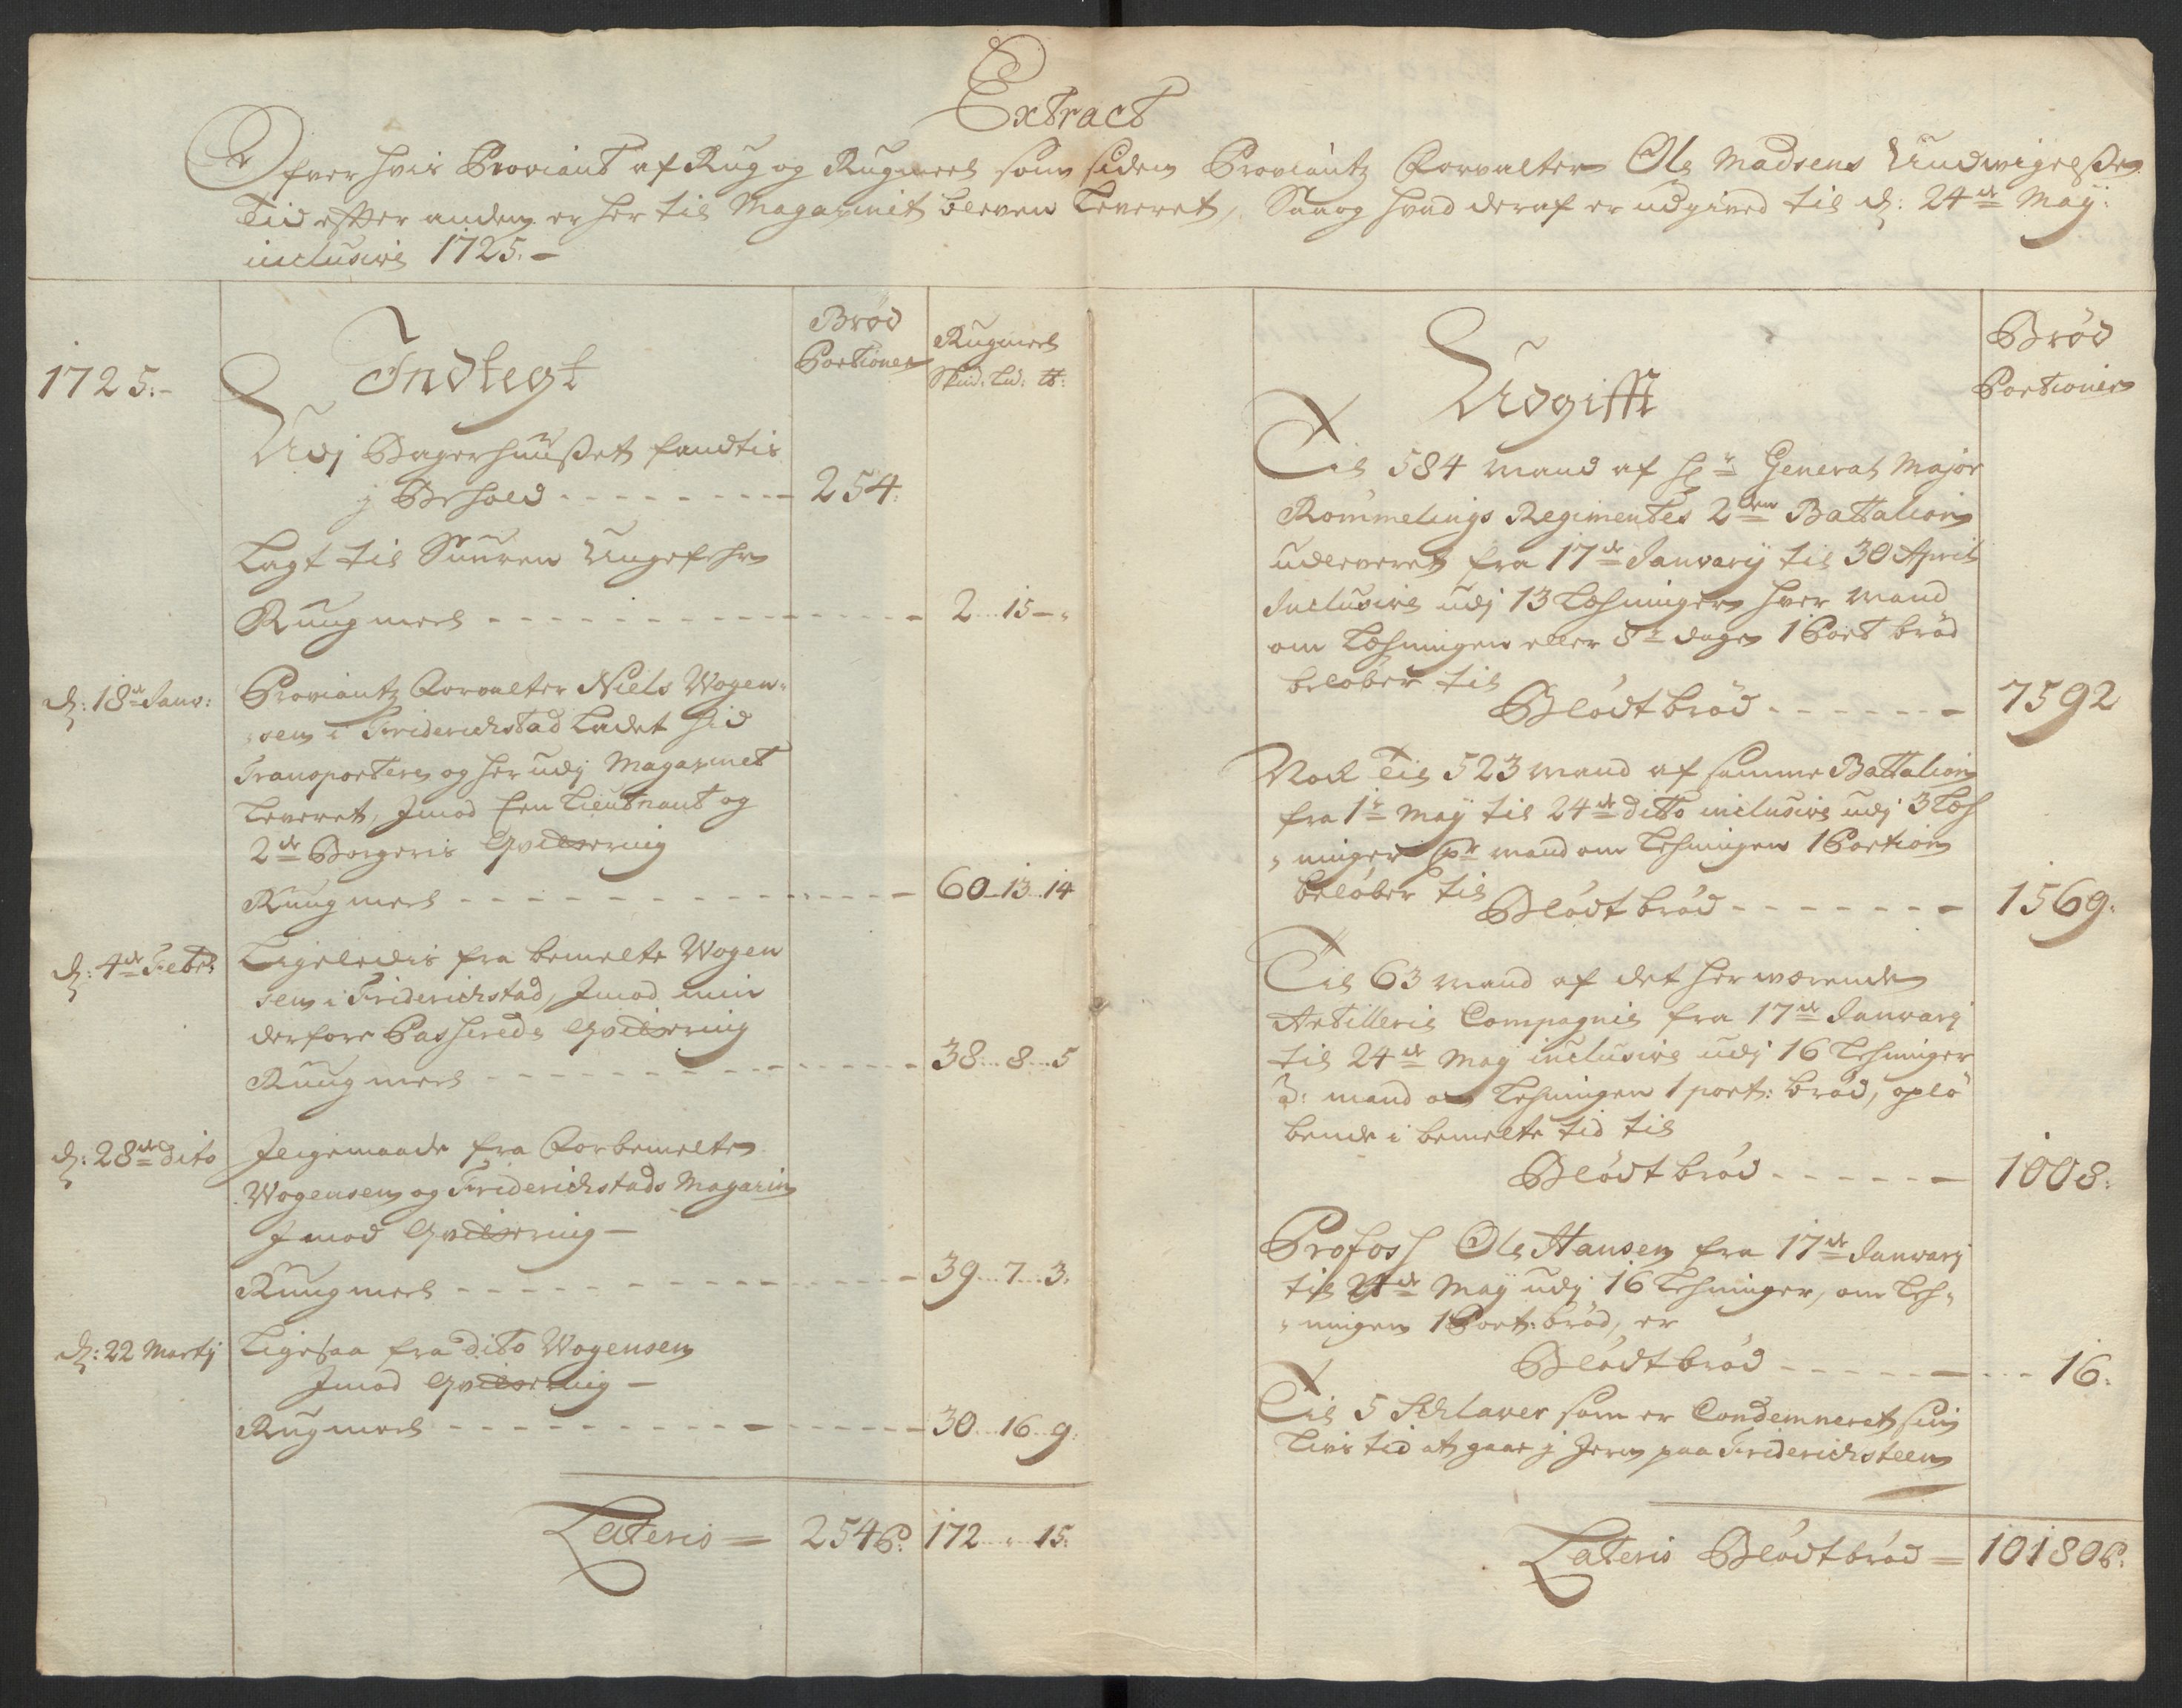 Extract
Ofver hvis Proviant af Rug og Rugmeel som siden Proviantz Forvalter Ole Madsens Undvigelße
Tid efter anden er her til Magazinet bleven Leveret, Saa og hvad deraf er udgived til d: 24de Maÿ:
inclusive 1725.-
1725.-
Indtegt
Brød
Portioner
Rugmeel
Skud: Lid: ℔:
Udj Bagerhuußet fandtis
j Behold - - - - - - - - - 254.
Lagt til Suuren Ungefehr
Ruugmeel - - - - - - - - - - - - 2...15 -.
d: 18de Janv:
Proviantz Forvalter Niels Wogen-
sen i Friderichstad Ladet hid
Transportere og her udj Magazinet
Leveret, Jmod Een Lieutnant og
2de Borgeris Qvittering
Ruugmeel - - - - - - - - - - - - 60..13..14
d: 4de Febr:
Ligeledis fra bemelte Wogen
sen i Friderichstad, Jmod min
derfore Passerede Qvittering
Ruugmeel - - - - - - - - - - - - 38...8...5
d: 28de Dito
Jligemaade fra Forbemelte
Wogensen og Friderichstads Magazin
Jmod Qvittering -
Ruugmeel - - - - - - - - - - - - 39...7...3.
d: 22 Martij
Ligesaa fra dito Wogensen
Jmod Qvittering -
Rugmeel - - - - - - - - - - - - 30...16..9.
Lateris = 254 P. 172 ..... 15.
Udgifft
Brød
Portioner
Til 584 Mand af Hr: General Major
Rømmelings Regimentes 2den Battalion
udleveret fra 17de Janvarij til 30 April
Inclusive udj 13 Lehninger hver Mand
om Lehningen eller 8te dage 1 Port brød
beløber til
Blødt brød - - - - - - - 7592
Nock Til 523 Mand af samme Battalion
fra 1te Maÿ til 24de Ditto inclusive udj 3 Leh
ninger pr mand om Lehningen 1 Portion
beløber til
Blødt brød - - - - - - - - 1569.
Til 63 Mand af det her værende
Artillerie Compagnie fra 17de Janvarij
til 24de Maÿ inclusive udj 16 Lehninger
à: mand om Lehningen 1 port: brød, opløbende
i bemelte tid til
Blødt brød - - - - - - 1008.
Profoss Ole Hansen fra 17de Janvarij
til 24de Maÿ udj 16 Lehninger, om Leh-
ningen 1 Port: brød, er
Blødt brød - - - - - - - - 16.
Til 5 Schlaver som er Condemneret sin
Livs tid at gaae j Jern paa Friderichsteen
Lateris Blødt brød = 10180 P.